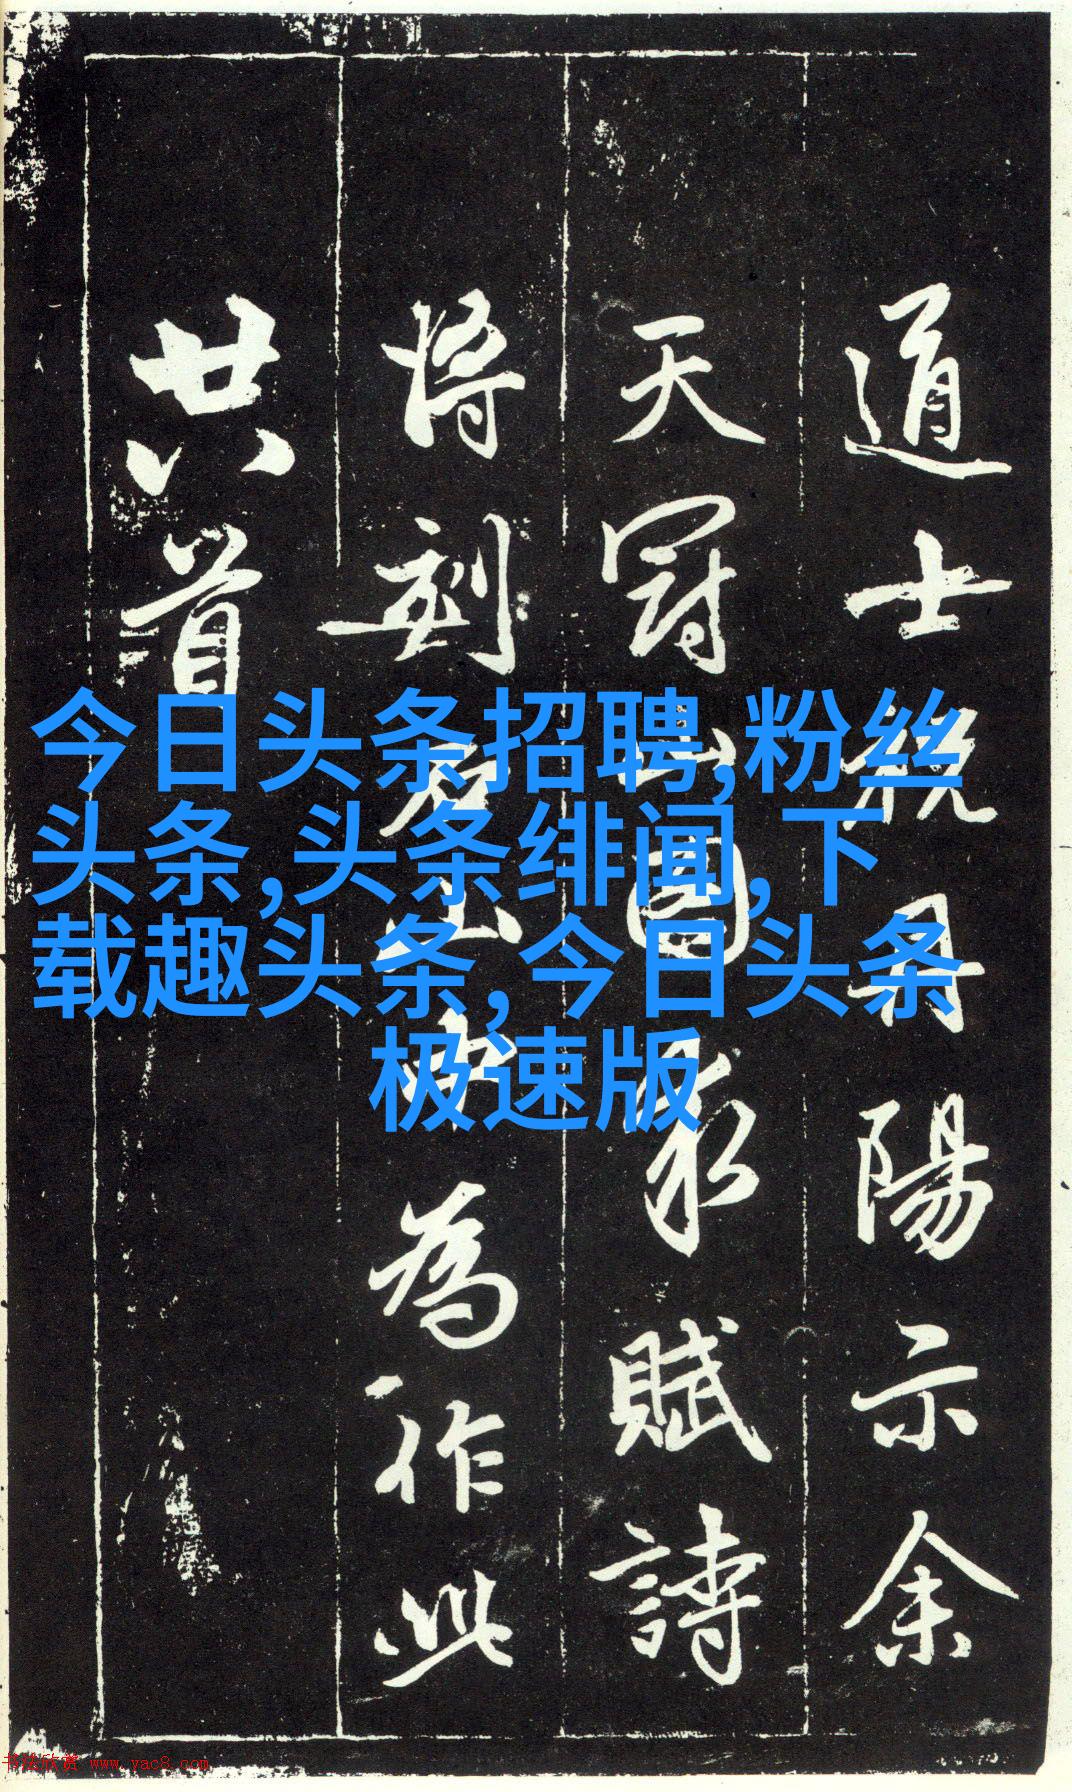 道士祝丹陽示余
天冠山圖求賦詩
將刻石山中為作此
廿八首
今日头条招聘,粉丝
头条,头条绯闻,下
载趣头条,今日头条
极速版
书法欣赏 www.yac8.com